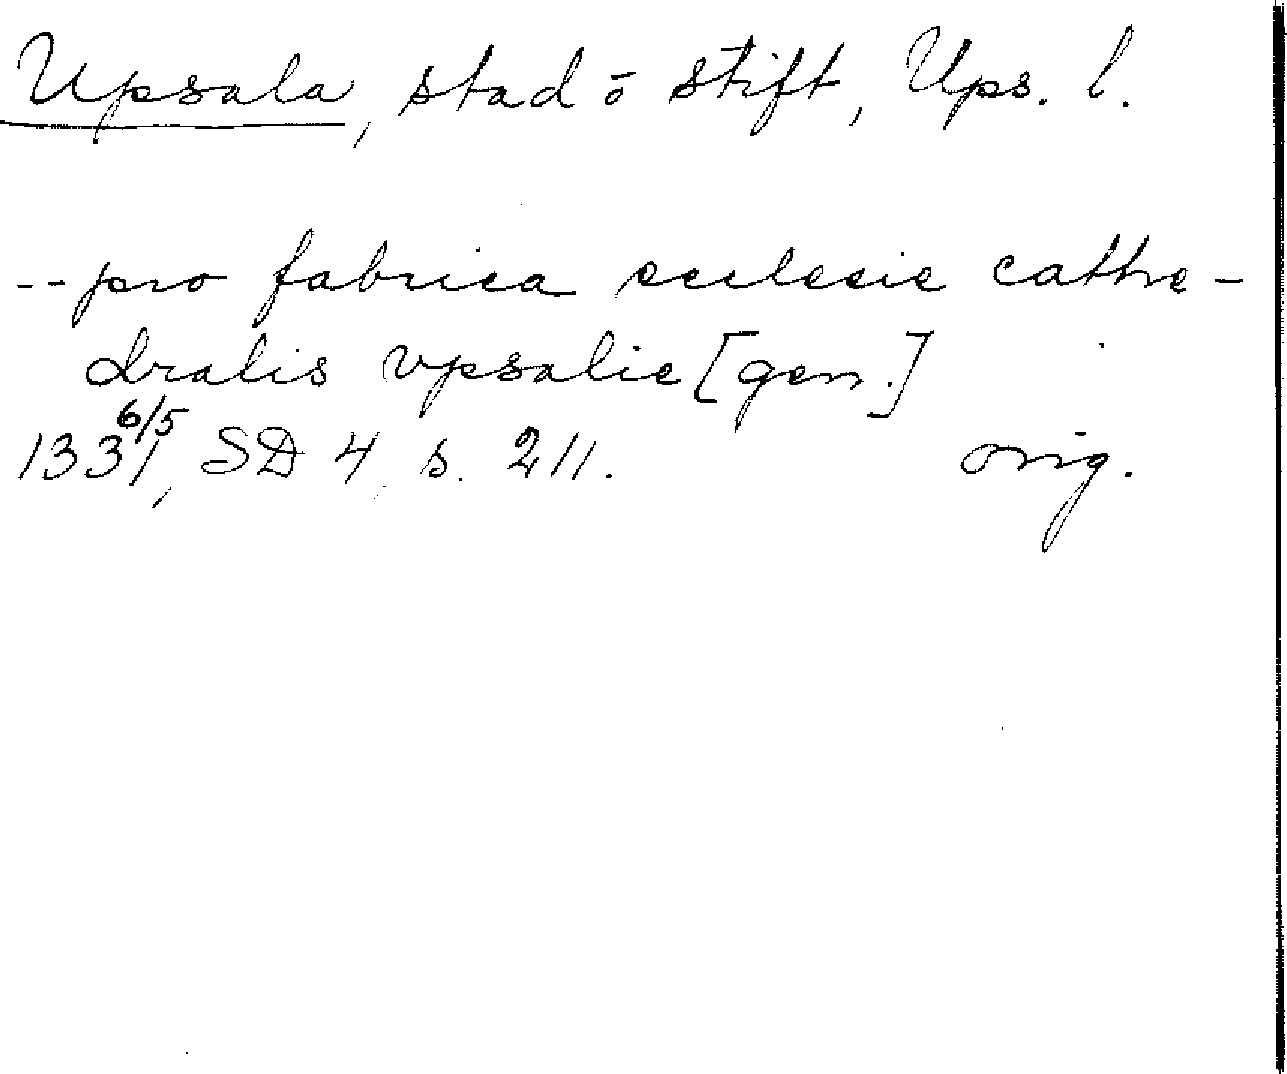 Upsala, stad o stift, Ups. l.
--pro fabrica ecclesie cathe-
dralis vpsalie [gen.]
1331 6/5, SD 4 s. 211. orig.